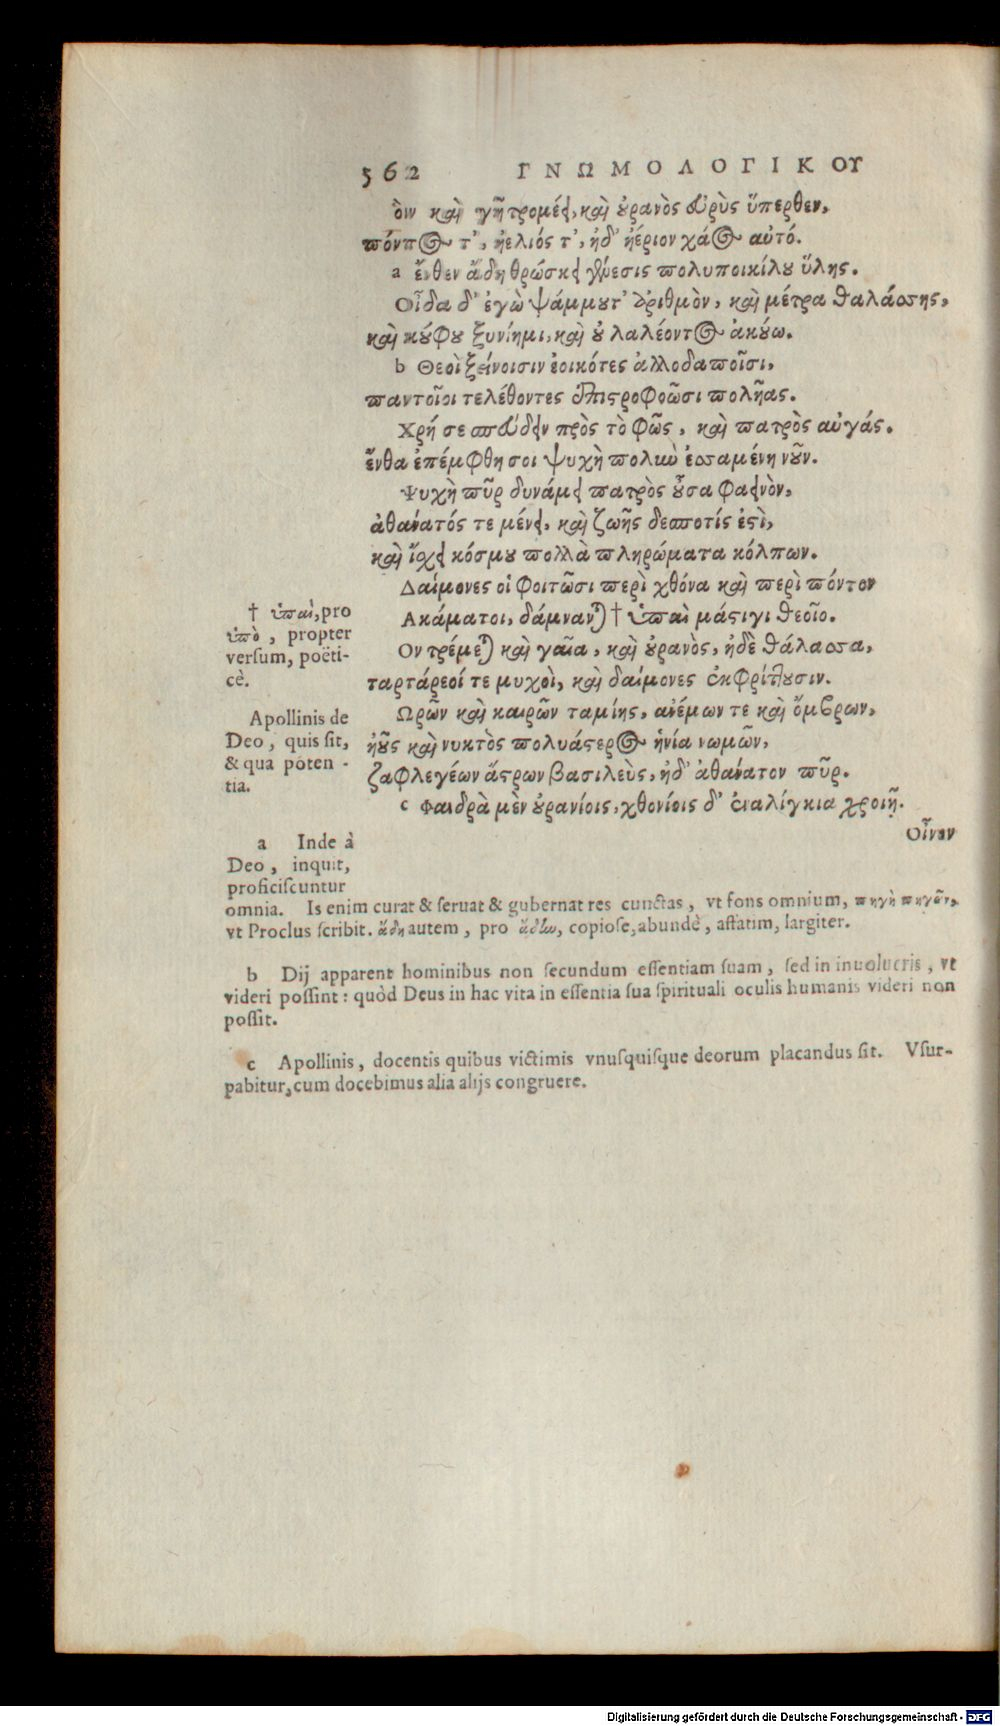 562 ΓΝΩΜΟΛΟΓΙΚΟΥ
ὃν καὶ γῆ τρομέει, καὶ οὐρανὸς εὐρὺς ὕπερθεν,
πόντος τ', ἠέλιός τ', ἠδ' ἠέριον χάος αὐτό.
a ἔνθεν ἄδη θρώσκει γένεσις πολυποικίλου ὕλης.
Οἶδα δ' ἐγὼ ψάμμου τ' ἀριθμὸν, καὶ μέτρα θαλάσσης,
καὶ κώφου ξυνίημι, καὶ οὐ λαλέοντος ἀκούω.
b Θεοὶ ξείνοισιν ἐοικότες ἀλλοδαποῖσι,
παντοῖοι τελέθοντες ἐπιστροφοῶσι πολῆας.
Χρή σε σπεύδειν πρὸς τὸ φῶς, καὶ πατρὸς αὐγάς.
ἔνθα ἐπέμφθη σοι ψυχὴ πολὺν ἑσσαμένη νοῦν.
Ψυχὴ πῦρ δυνάμει πατρὸς οὖσα φαεινὸν,
ἀθανατός τε μένει, καὶ ζωῆς δεσποτίς ἐστὶ,
καὶ ἴσχει κόσμου πολλὰ πληρώματα κόλπων.
Δαίμονες οἱ φοιτῶσι περὶ χθόνα καὶ περὶ πόντον
Ακάματοι, δάμνανται † ὑπαὶ μάστιγι θεοῖο.
Ον τρέμεται καὶ γαῖα, καὶ οὐρανὸς, ἠδὲ θάλασσα,
ταρτάρεοί τε μυχοὶ, καὶ δαίμονες ἐκφρίττουσιν.
Ωρῶν καὶ καιρῶν ταμίης, ἀνέμων τε καὶ ὄμβρων,
ἠοῦς καὶ νυκτὸς πολυάστερος ἡνία νωμῶν,
ζαφλεγέων ἄστρων βασιλεὺς, ἠδ' ἀθανατον πῦρ.
c Φαιδρὰ μὲν οὐρανίοις, χθονίοις δ' ἐναλίγκια χροιῇ.
Οἶνον
† ὑπαὶ, pro
ὑπὸ, propter
versum, poëti-
cè.
Apollinis de
Deo, quis sit,
& qua poten-
tia.
a Inde à
Deo, inquit,
proficiscuntur
omnia. Is enim curat & seruat & gubernat res cunctas, vt fons omnium, πηγὴ πηγῶν,
vt Proclus scribit. ἄδη autem, pro ἄδην, copiose, abundè, affatim, largiter.
b Dij apparent hominibus non secundum essentiam suam, sed in inuolucris, vt
videri possint: quòd Deus in hac vita in essentia sua spirituali oculis humanis videri non
possit.
c Apollinis, docentis quibus victimis vnusquisque deorum placandus sit. Vsur-
pabitur, cum docebimus alia alijs congruere.
Digitalisierung gefördert durch die Deutsche Forschungsgemeinschaft - DFG